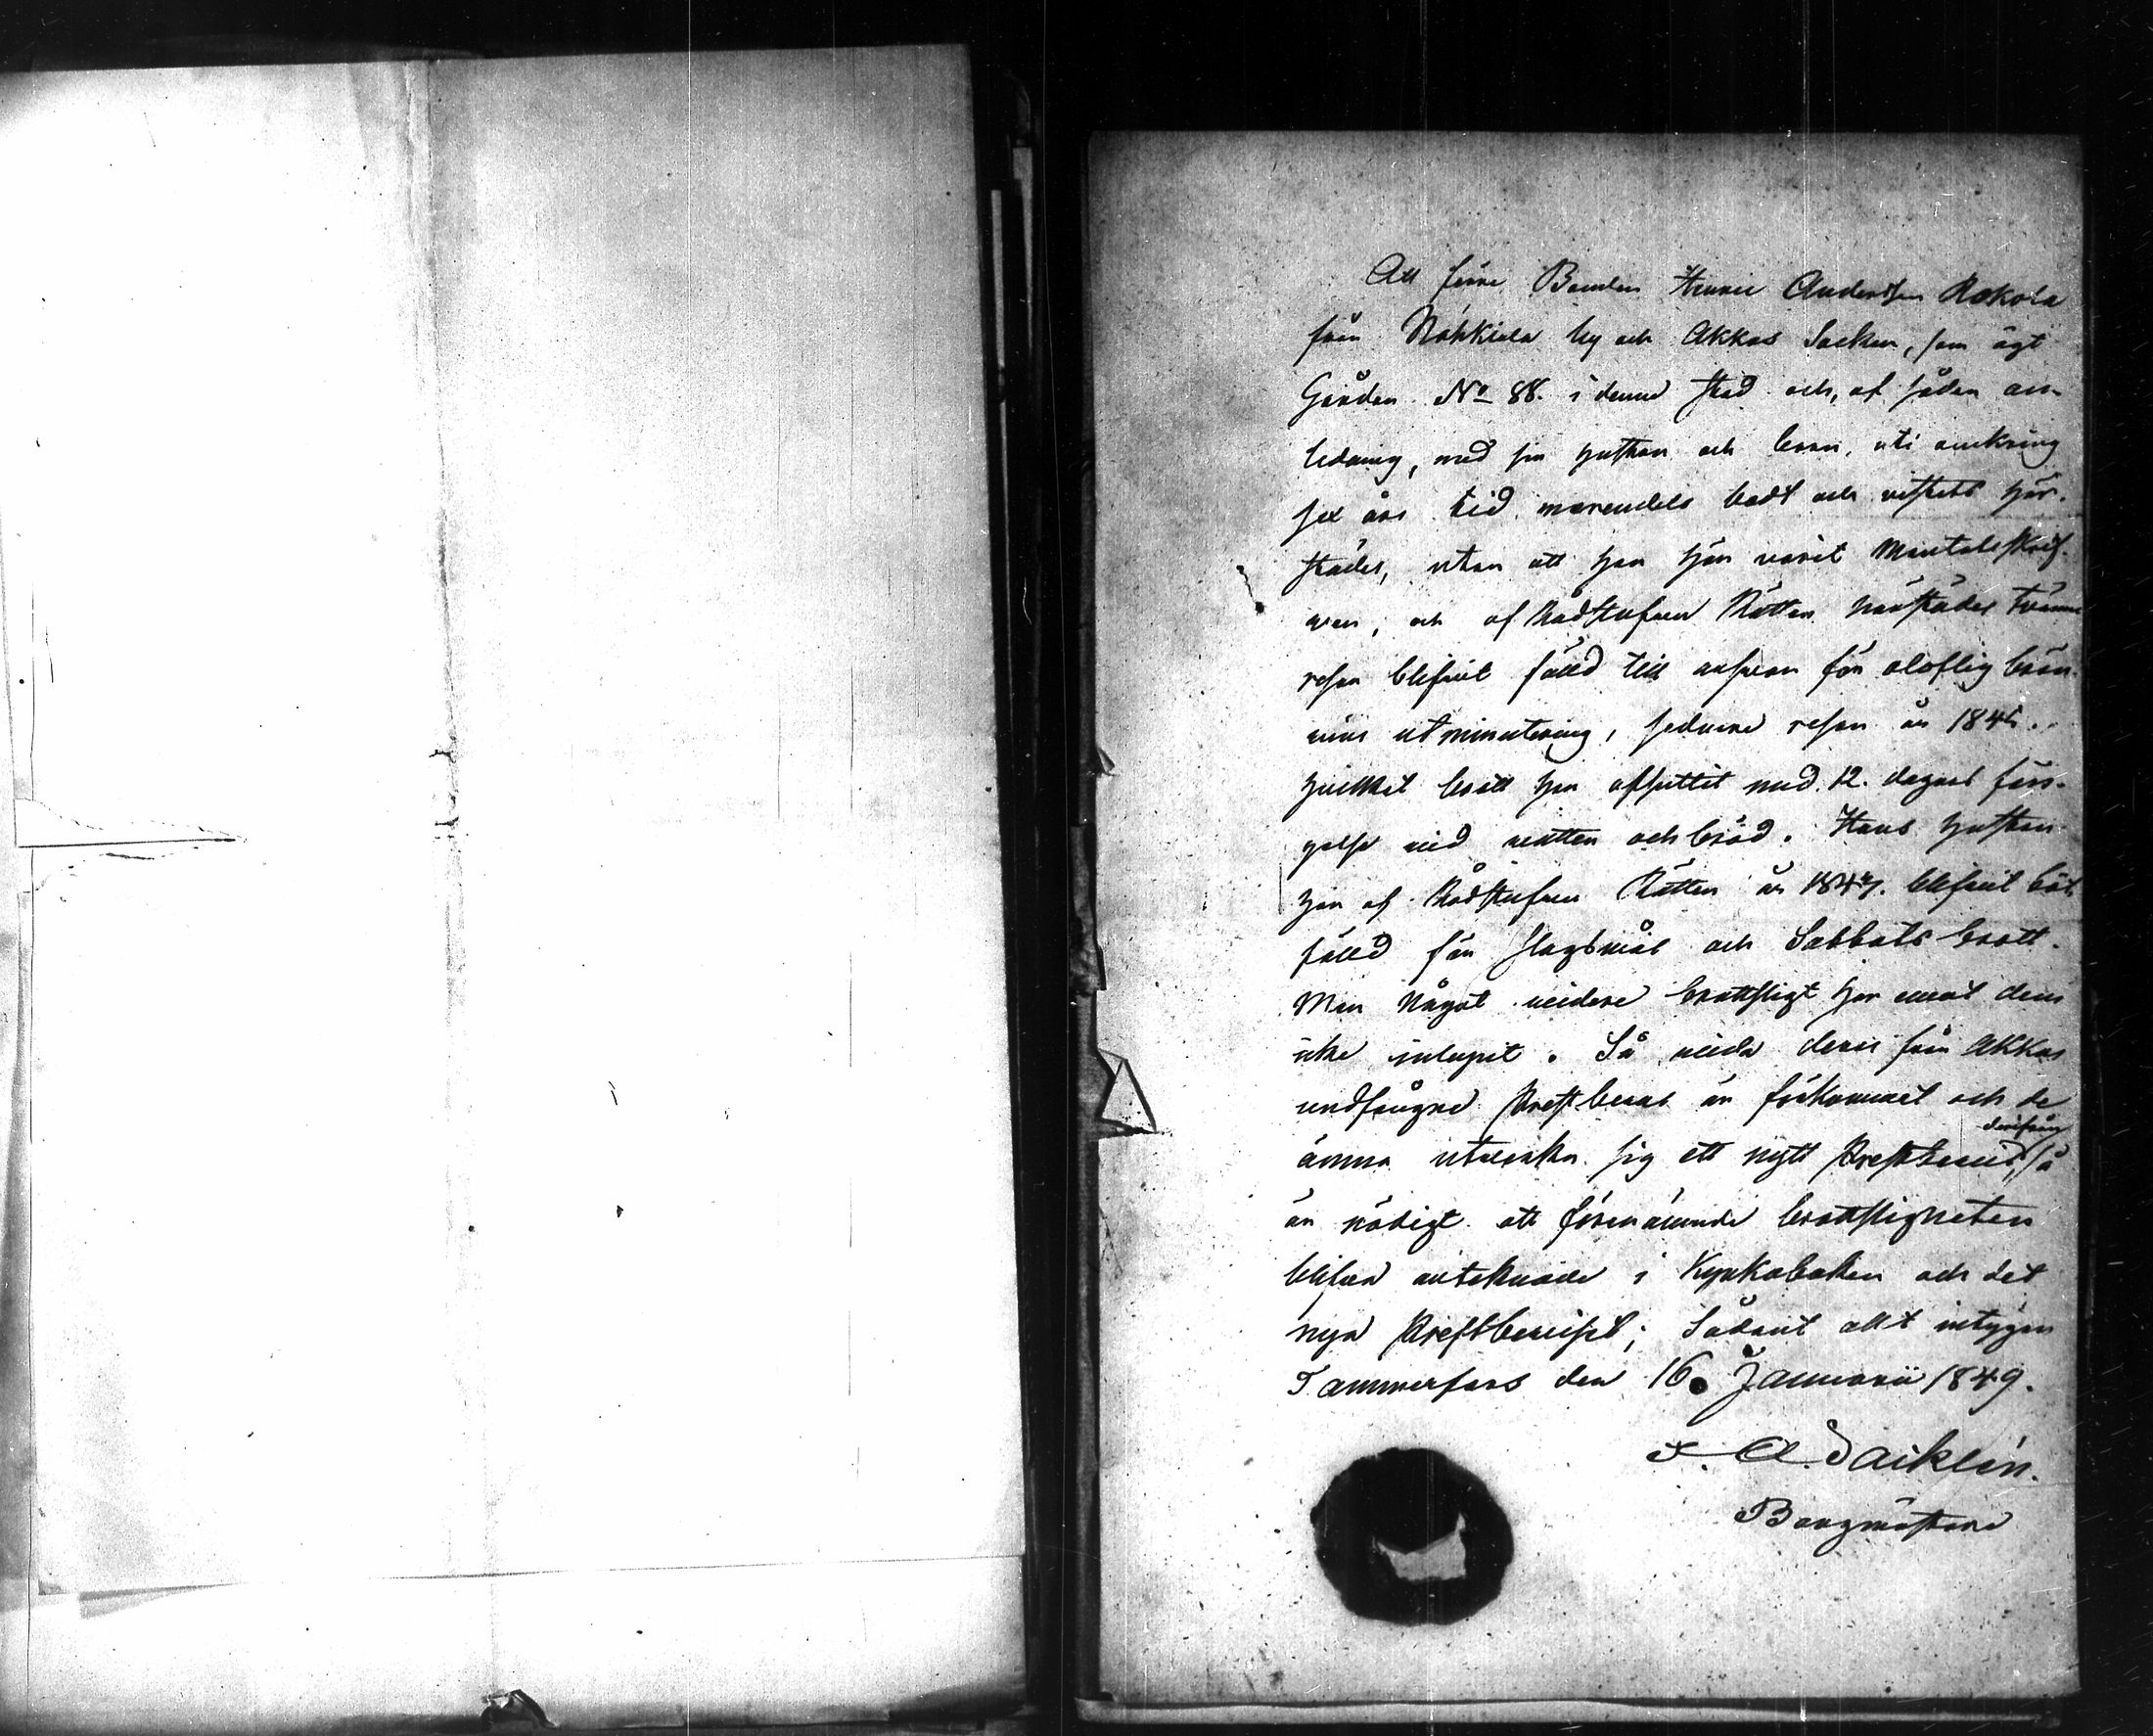 Att förre Bonden Henric Andersson Rokola
från Nahkiala by och Akkas Socken, som ägt
Gården No 88. i denne stad och, af sådan an-
ledning, med sin hustru och barn, uti omkring
sex års tid merendels bodt och vistats här-
städes, utan att han här varit Mantalsskrif-
ven, och af Rådstufvu Rätten härstädes tvänne
resor blifvit fälld till ansvar för oloflig brän-
vins utminutering, sednare resan år 184
hvilket brott han afsuttit med 12. dagars fän-
gelse vid vatten och bröd. Hans hustru
har af Rådstufvu Rätten år 1847. blifvit böt-
fälld för slagsmål och Sabbats brott.
Men något vidare brottsligt har emot dem
icke inlupit. Så vida deras från Akkas
undfångne Prestbevis är förkommet och de
ämna utverka sig ett nytt Prestbevis derifrån, så
är nödigt att förenämnde brottsligheten
blifva antecknade i Kyrkoboken och det
nya Prestbeviset; Sådant allt intygar
Tammerfors den 16. Januarii 1849.
F. A. Daiklén.
Borgmästare